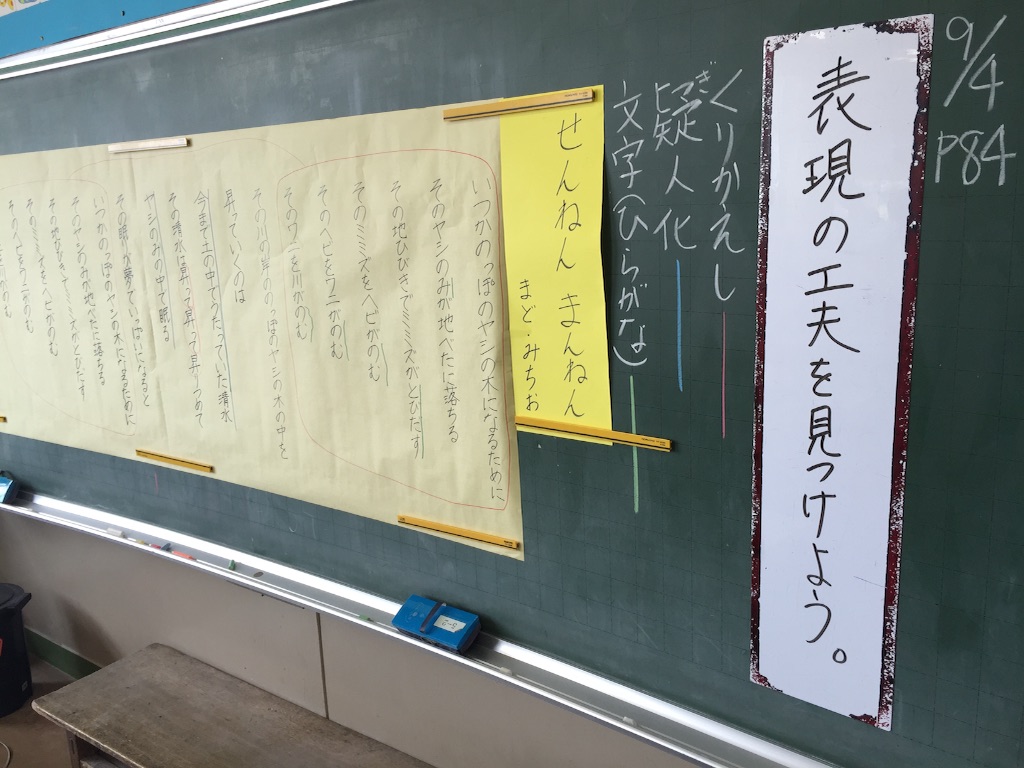 9/4
P84
表現の工夫を見つけよう。
くりかえし
ぎ
擬人化
文字(ひらがな)
せんねん まんねん
まど・みちお
いつかののっぽのヤシの木になるために
そのヤシのみが地べたに落ちる
その地ひびきでミミズがとびだす
そのミミズをヘビがのむ
そのヘビをワニがのむ
そのワニを川がのむ
その川の岸ののっぽのヤシの木の中を
昇っていくのは
今まで土の中でうたっていた清水
その清水は昇って昇って昇りつめて
ヤシのみの中で眠る
その眠りが夢でいっぱいになると
いつかののっぽのヤシの木になるために
そのヤシのみが地べたに落ちる
その地ひびきでミミズがとびだす
そのミミズをヘビがのむ
そのヘビをワニがのむ